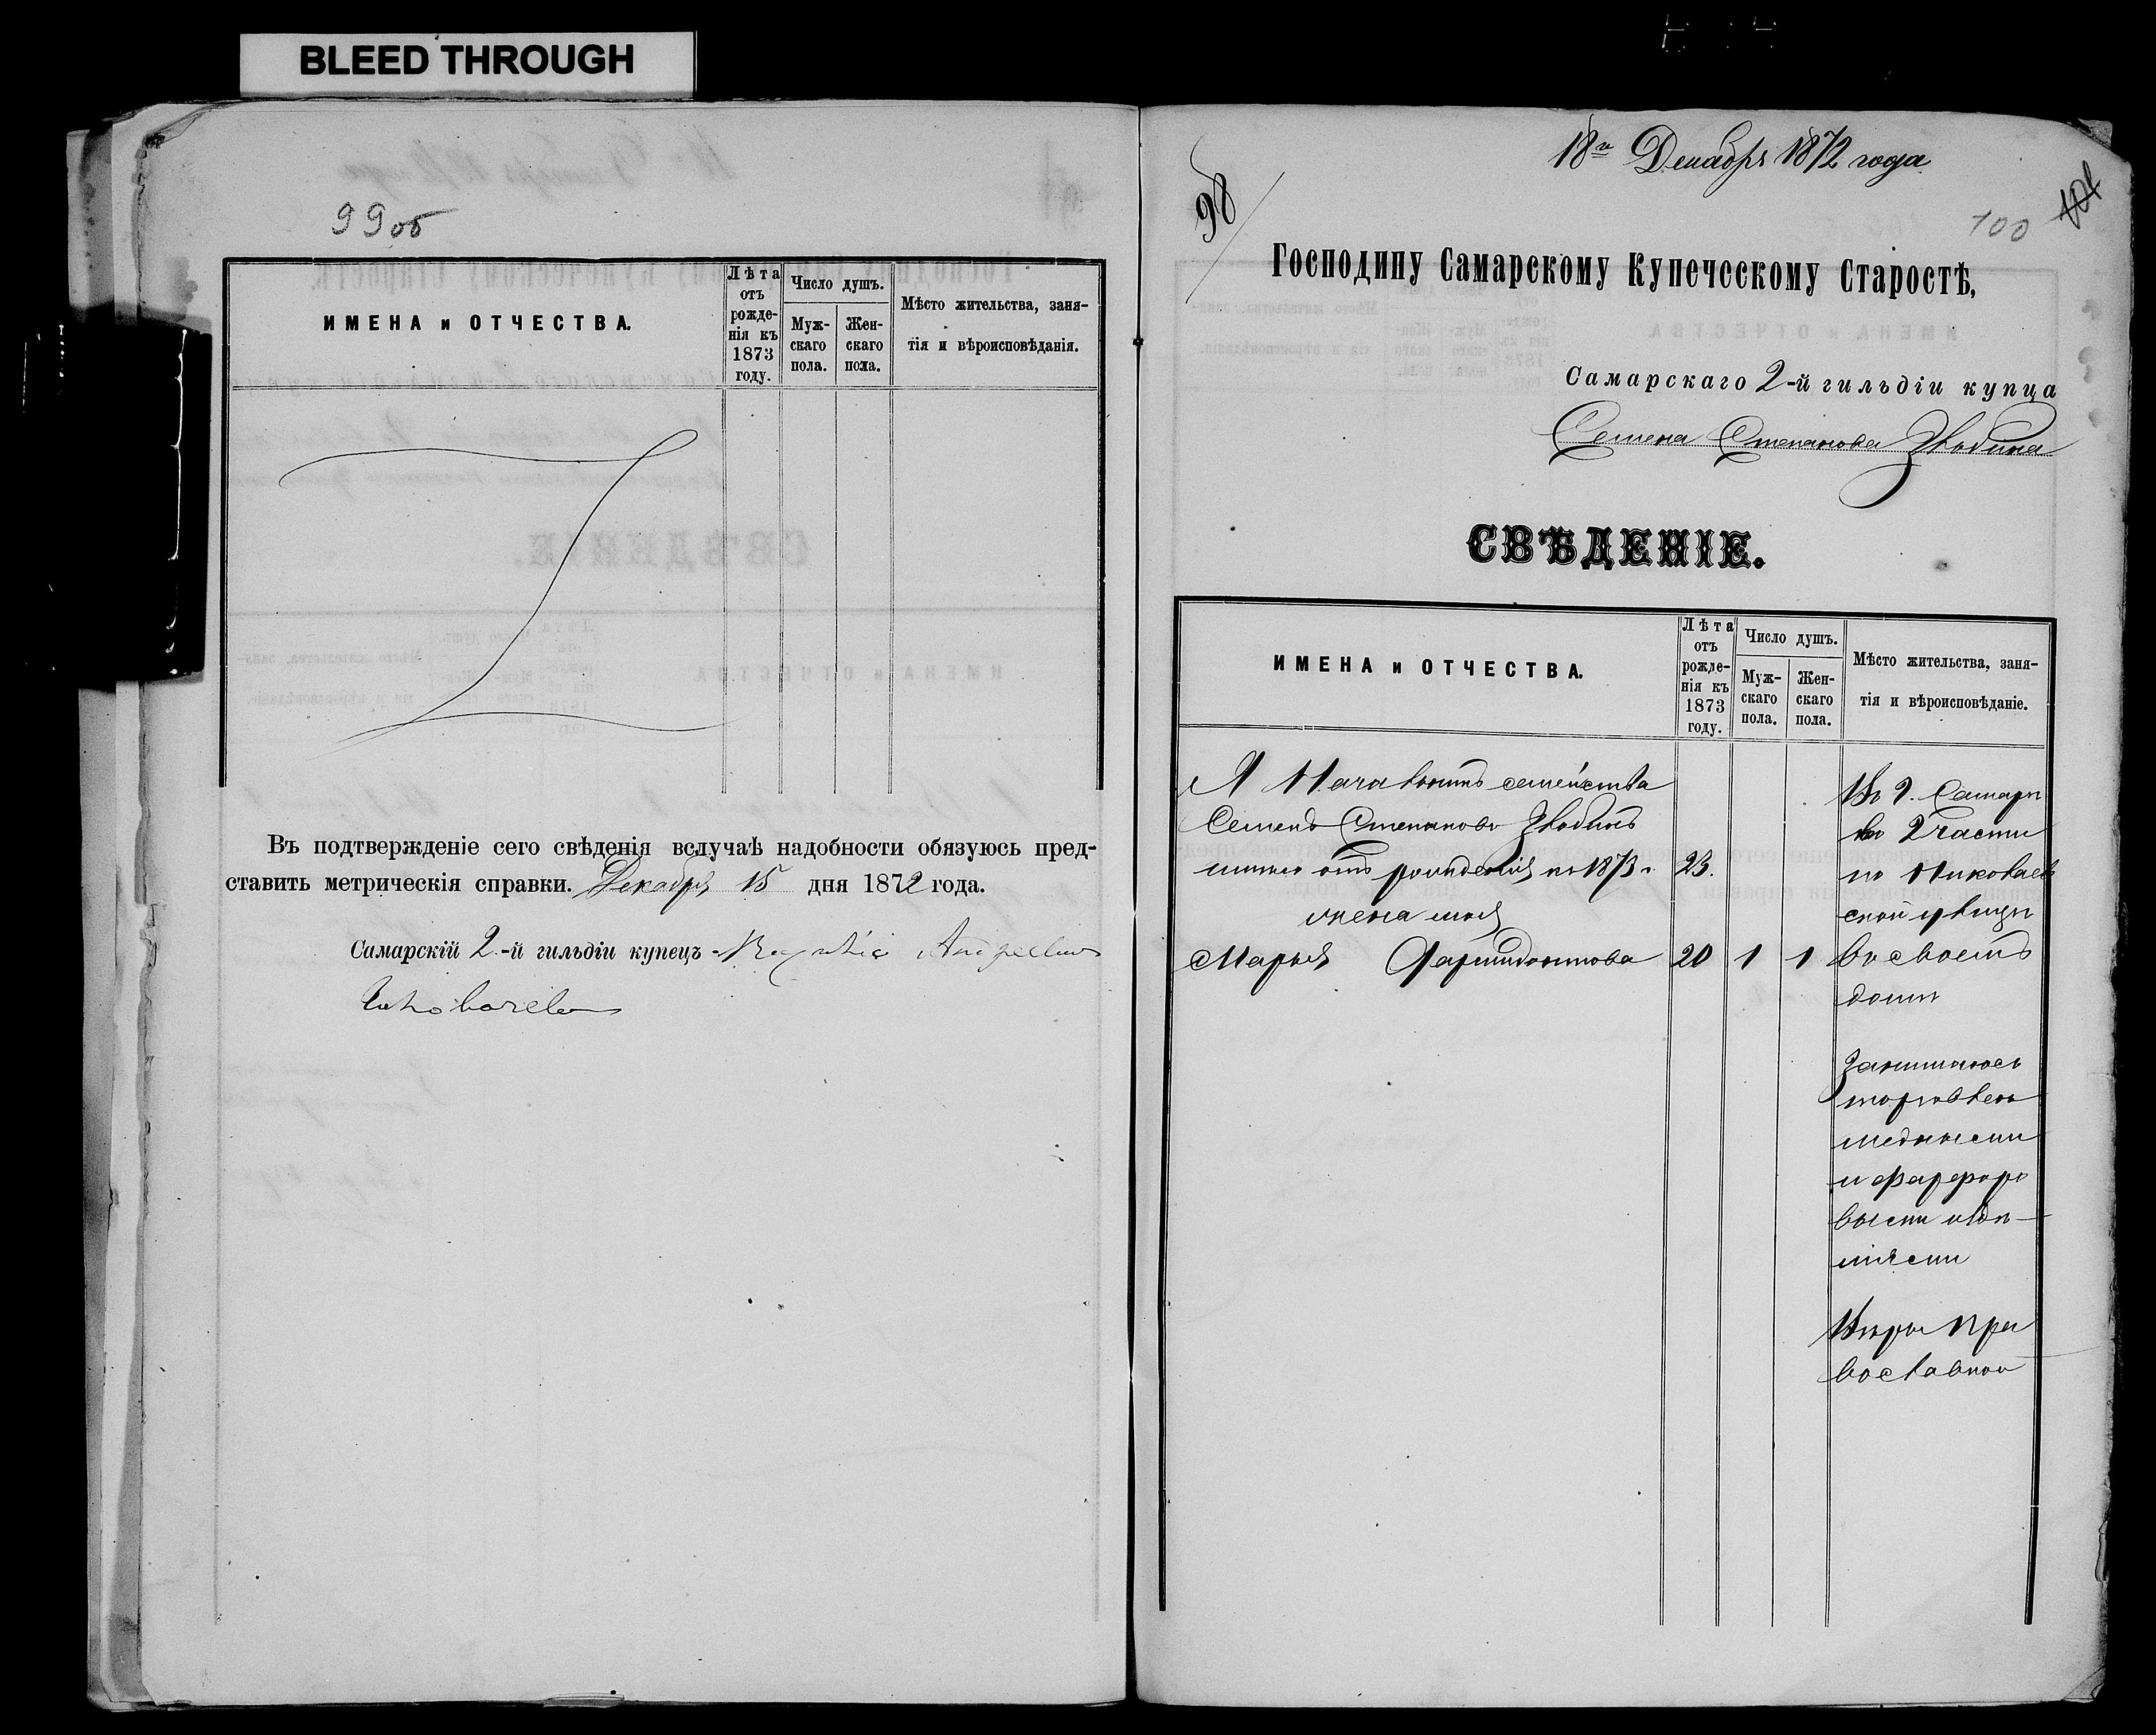 BLEED THROUGH
99об
ИМЕНА и ОТЧЕСТВА.
Лѣта отъ рожденія къ 1873 году.
Число душъ.
Мужскаго пола.
Женскаго пола.
Мѣсто жительства, заня-
тія и вѣроисповѣданія.
Въ подтвержденіе сего свѣденія вслучаѣ надобности обязуюсь пред-
ставить метрическія справки. Декабря 15 дня 1872 года.
Самарскій 2-й гильдіи купецъ Андреевъ
18го Декабря 1872 года
98
100
Господину Самарскому Купеческому Старостѣ,
Самарскаго 2-й гильдіи купца
Семена Степанова
СВѢДЕНІЕ.
ИМЕНА и ОТЧЕСТВА.
Лѣта отъ рожденія къ 1873 году.
Число душъ.
Мужскаго пола.
Женскаго пола.
Мѣсто жительства, заня-
тія и вѣроисповѣданіе.
Я семейства
Семенъ Степановъ
отъ рожденія къ 1873 г. 23.
жена моя
Марья 20 1 1
Въ г. Самарѣ
во 2 части
по Николаев
ской улицѣ
въ своемъ
домѣ
Занимаюсь
торговлею
медными
и фарфоро
выми издѣ-
ліями
Вѣры пра
вославной